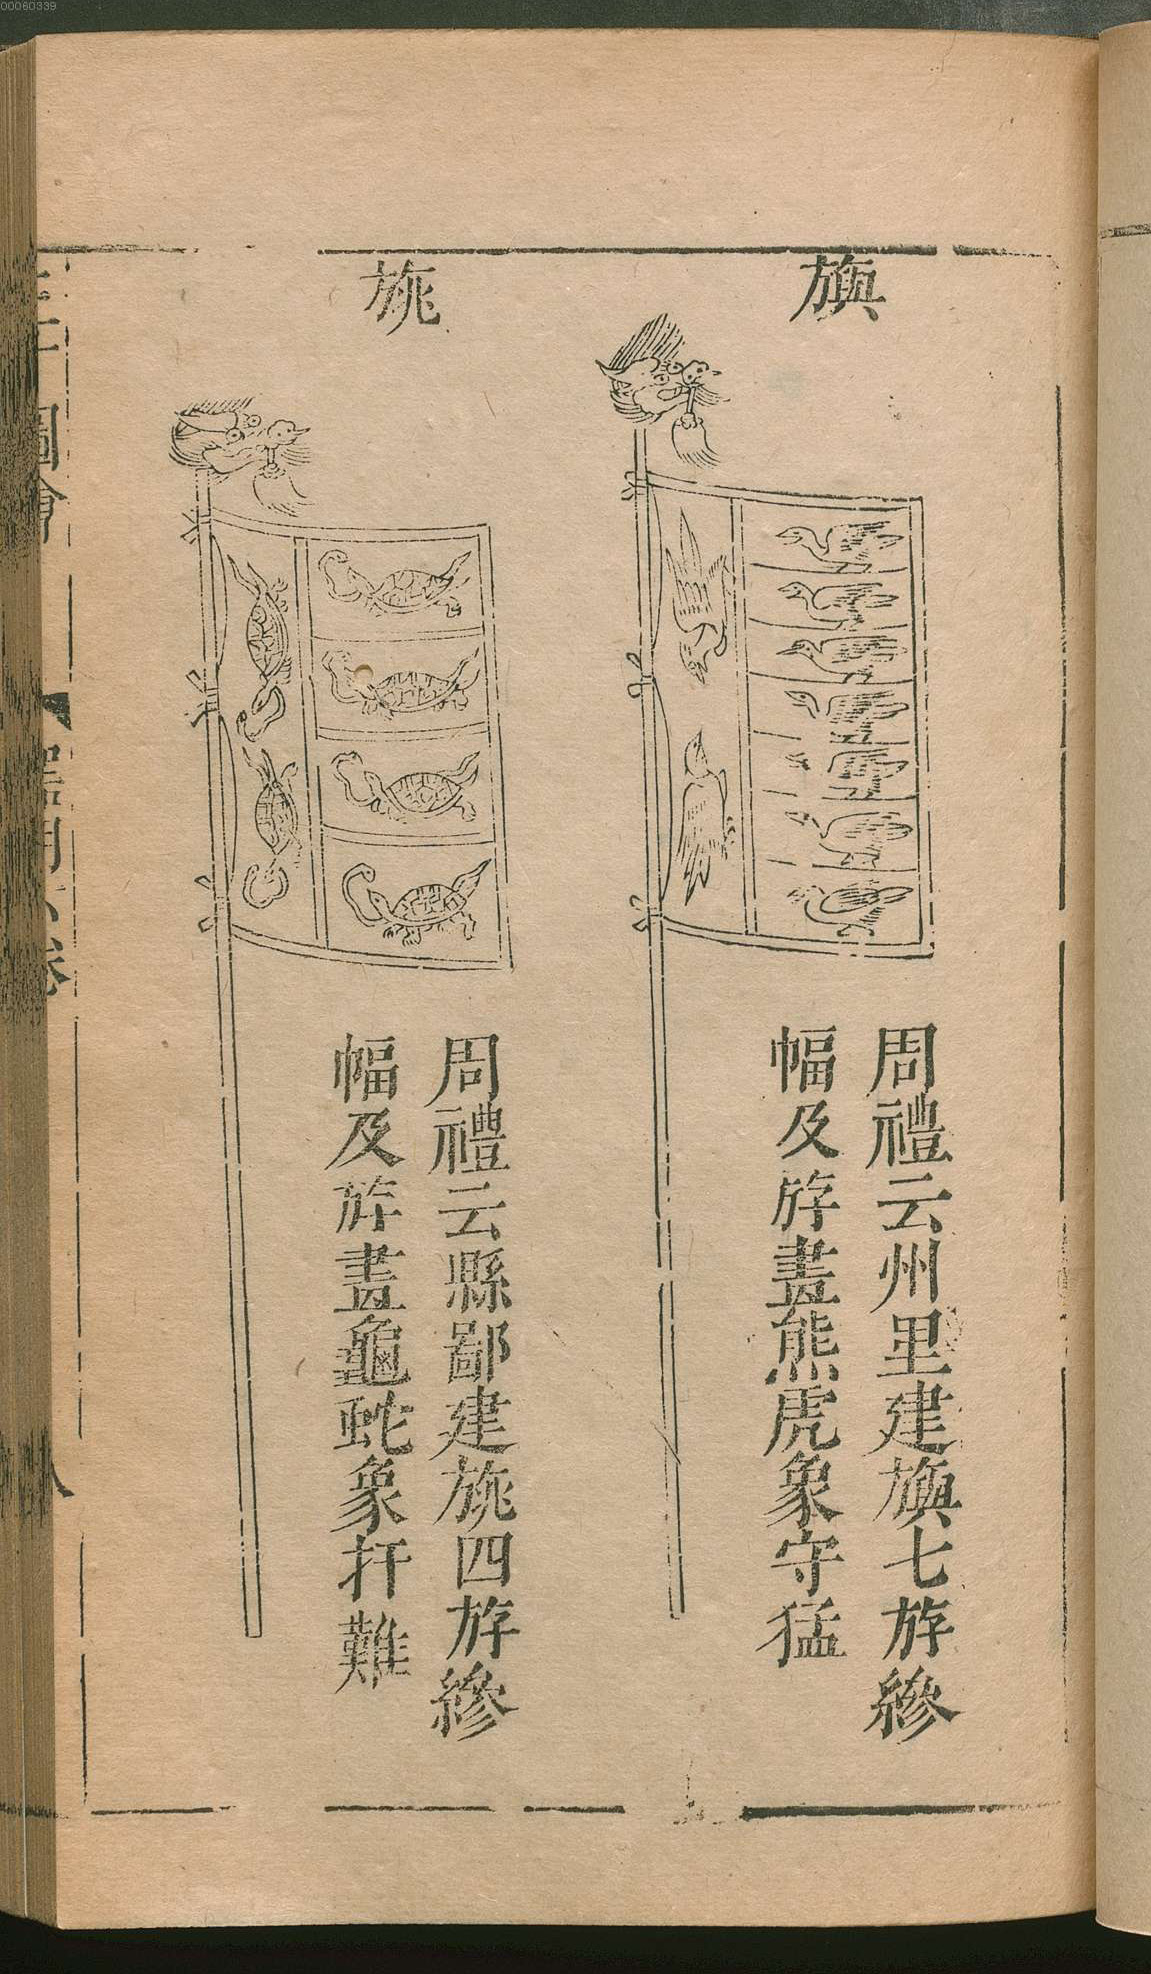 00060339
旟
周禮云州里建旟七斿縿
幅及斿畫熊虎象守猛
旐
周禮云縣鄙建旐四斿縿
幅及斿畫龜蛇象扞難
圖會
器用
卷
八